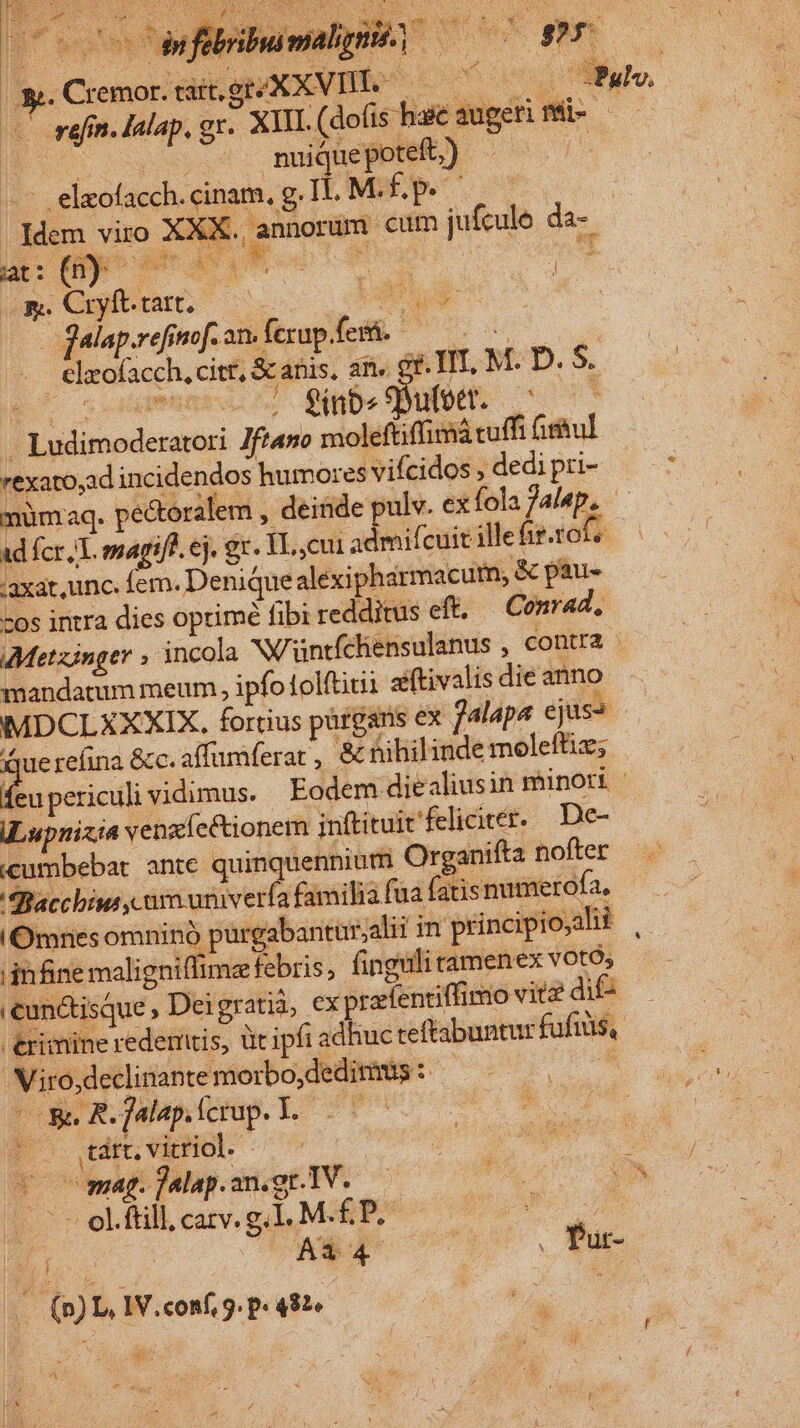 in febribus malignis.) 375
℞. Cremor. tart. gr. XXVIII. Pulv.
resin. Jalap. gr. XIII. (dosis hæc augeri mi-
nuique potest,)
elæosacch. cinam. g. II. M. f. p.
Idem viro XXX. annorum cum jusculo da-
at: (n)
℞. Cryst. tart.
Jalap. resinos. an. scrup. sem.
elæosacch. citr, & anis. an. gr. III, M. D. S.
Lind-Pulver.
Ludimoderatori Isnano molestissimâ tussi simul
vexato, ad incidendos humores viscidos, dedi pri-
mùm aq. pectoralem, deinde pulv. ex sola Jalap.
ad scr. I. magist. ej. gr. II., cui admiscuit ille sir. ros.
laxat. unc. sem. Denique alexipharmacum, & pau-
cos intra dies optimè sibi redditus est. Conrad.
Metzinger, incola Wüntschensulanus, contra
mandatum meum, ipso solstitii æstivalis die anno
MDCLXXXIX. fortius purgans ex Jalapa ejus-
que resina &c. assumserat, & nihil inde molestiæ,
seu periculi vidimus. Eodem die alius in minori
Lupnizia venæsectionem instituit feliciter. De-
cumbebat ante quinquennium Organista noster
Bacchius, cum universa familia sua satis numerosa.
Omnes omninò purgabantur, alii in principio, alii
in fine malignissimæ febris, singuli tamen ex voto,
cunctisque, Dei gratiâ, ex præsentissimo vitæ dis-
crimine redemtis, ùt ipsi adhuc testabuntur fusiùs.
Viro, declinante morbo, dedimus:
℞. R. Jalap. scrup. I.
tart. vitriol.
mag. Jalap. an. gr. IV.
ol. still. carv. g. I. M. f. P.
Aa 4 Pur-
(n) L. IV. cons. 9. p. 482.